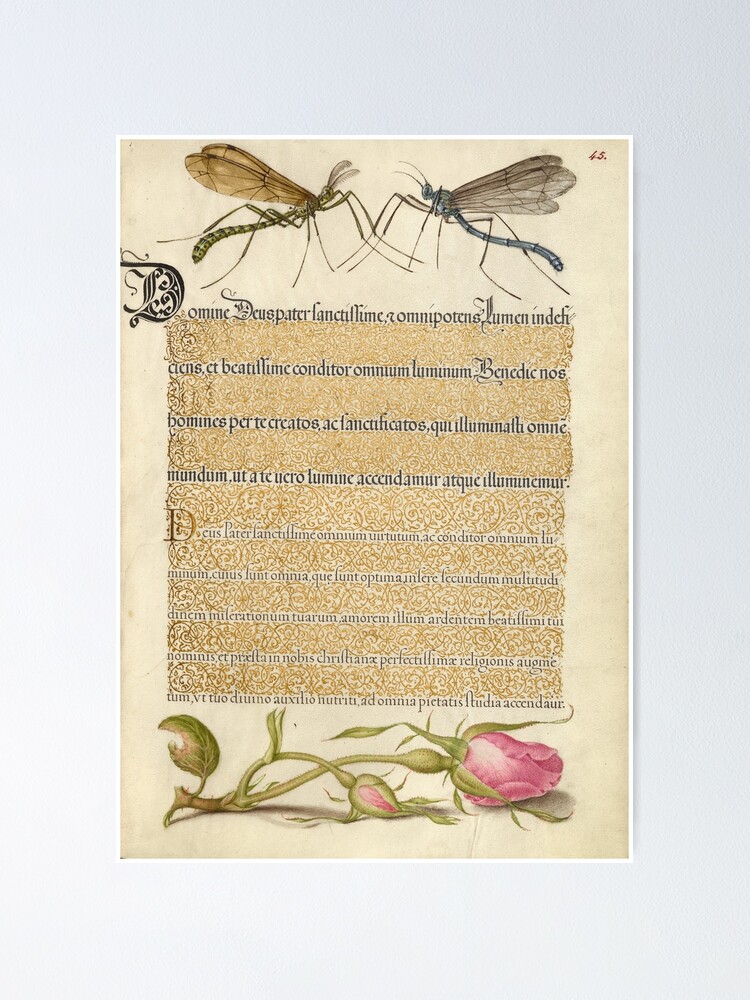 45.
Domine Deus pater sanctissime, & omnipotens Lumen indefi-
ciens, et beatissime conditor omnium luminum Benedic nos
homines per te creatos, ac sanctificatos, qui illuminasti omnē
mundum, ut a te uero lumine accendamur atque illuminemur.
Deus Pater sanctissime omnium uirtutum, ac conditor omnium lu-
minum, cuius sunt omnia, que sunt optima, insere secundum multitudi-
dinem miserationum tuarum, amorem illum ardentem beatissimi tui
nominis, et præsta in nobis christianæ perfectissimæ religionis augmē
tum, vt tuo diuino auxilio nutriti, ad omnia pietatis studia accendaur.